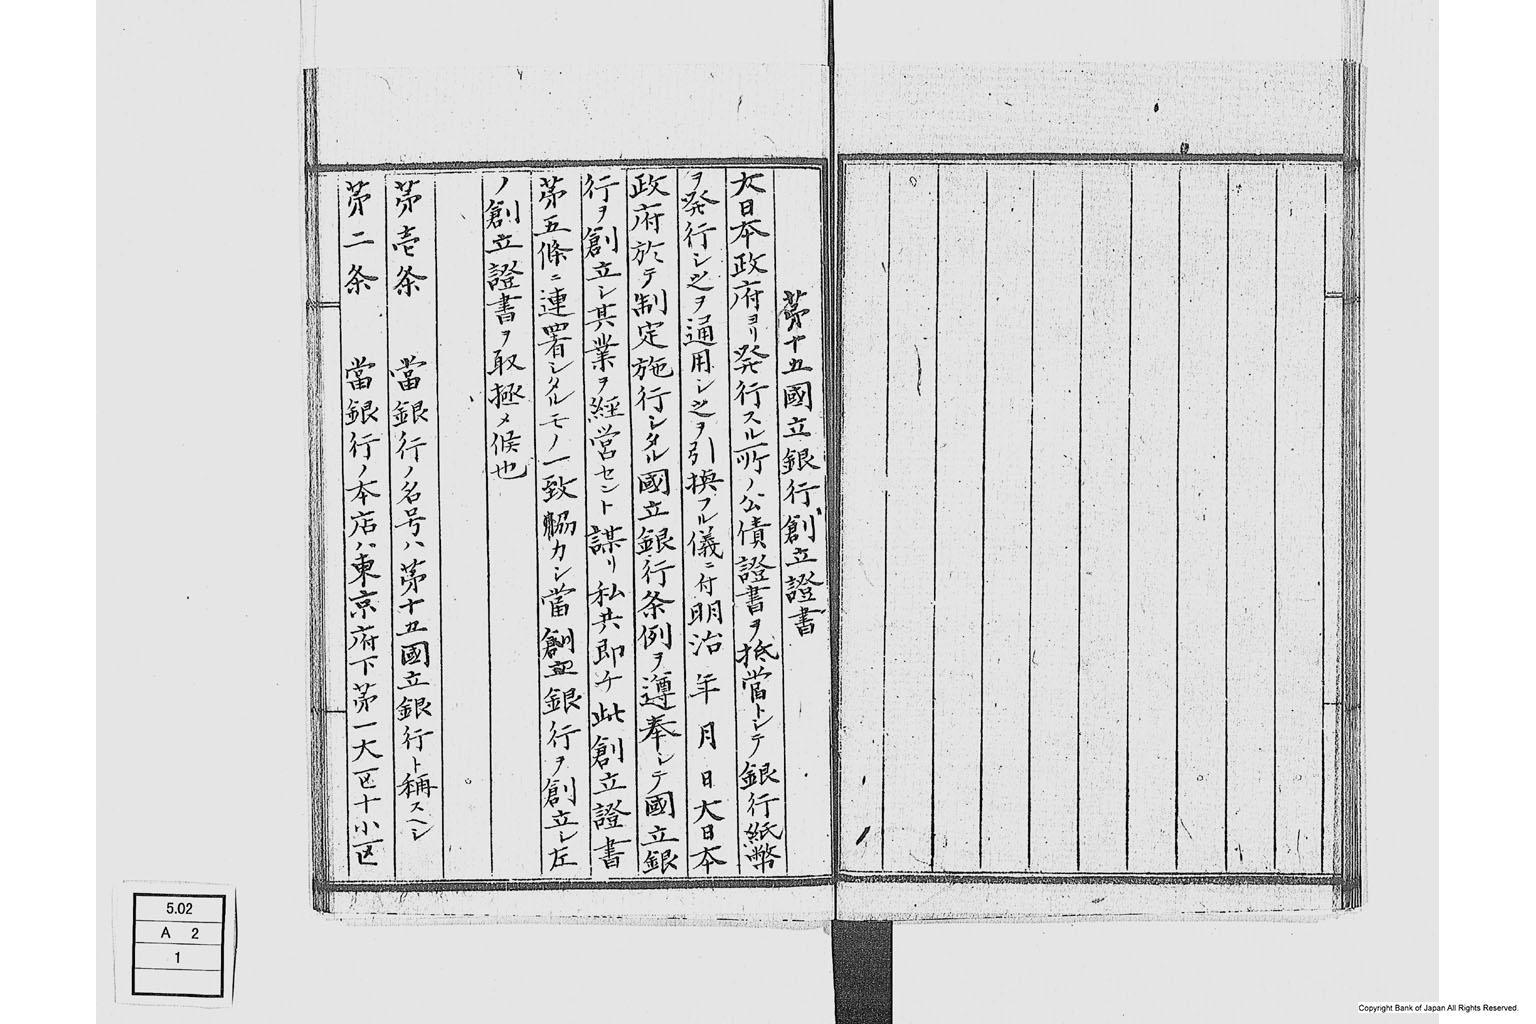 第十五國立銀行創立證書
大日本政府ヨリ発行スル所ノ公債證書ヲ抵當トシテ銀行紙幣
ヲ発行シ之ヲ通用シ之ヲ引換フル儀ニ付明治 年 月 日大日本
政府於テ制定施行シタル國立銀行条例ヲ遵奉シテ國立銀
行ヲ創立シ其業ヲ経営セント謀リ私共即チ此創立證書
第五條ニ連署シタルモノ一致協力シ當創立銀行ヲ創立シ左
ノ創立證書ヲ取極メ候也
第壱条 當銀行ノ名号ハ第十五國立銀行ト稱スヘシ
第二条 當銀行ノ本店ハ東京府下第一大区十小区
5.02
A 2
1
Copyright Bank of Japan All Rights Reserved.